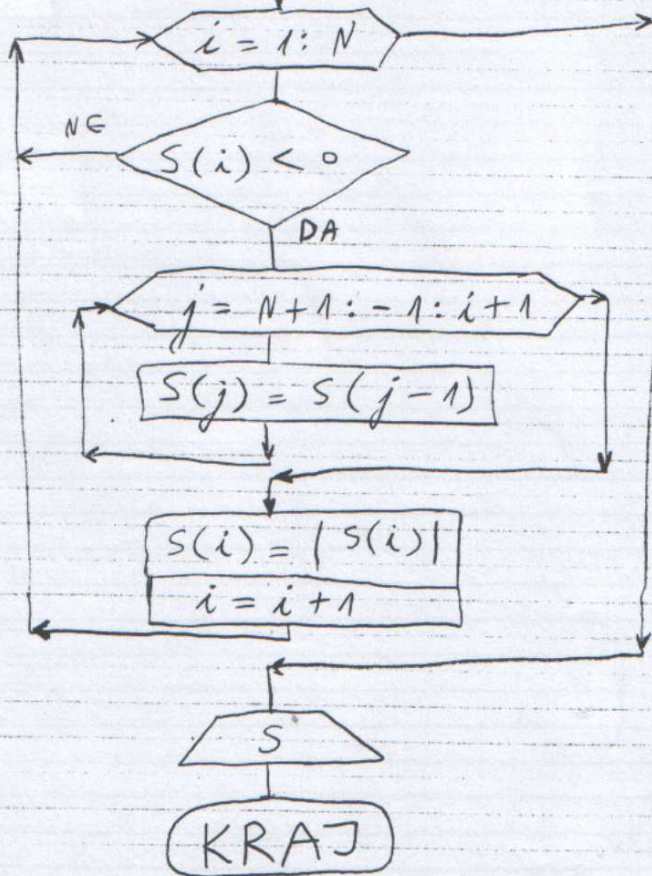 i = 1 : N
NE
S(i) < 0
DA
j = N+1 : -1 : i+1
S(j) = S(j-1)
S(i) = |S(i)|
i = i+1
S
KRAJ